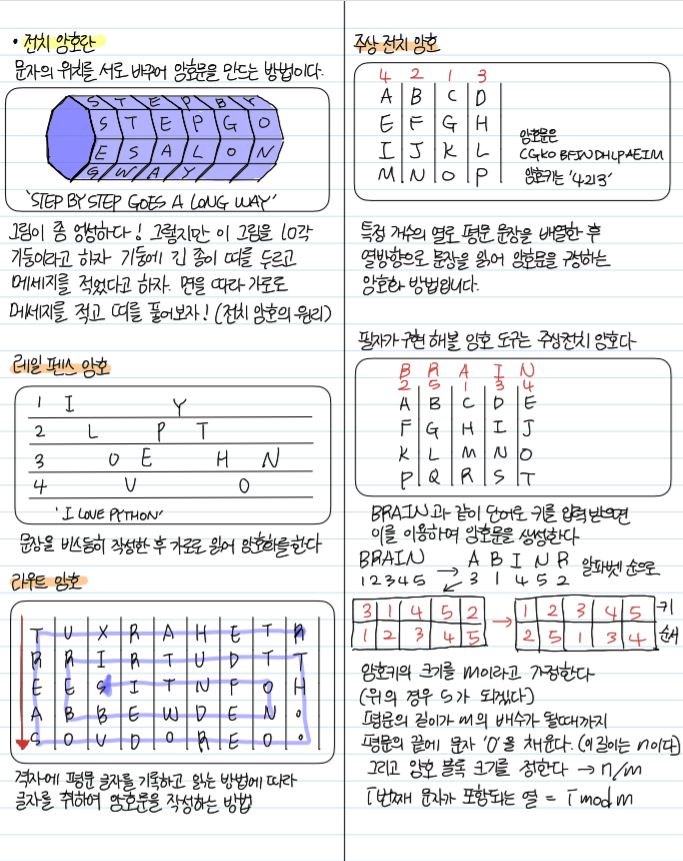 • 전치 암호란
문자의 위치를 서로 바꾸어 암호문을 만드는 방법이다.
S T E P B Y
S T E P G O
E S A L O N
G W A Y
'STEP BY STEP GOES A LONG WAY'
그림이 좀 엉성하다! 그렇지만 이 그림을 10각
기둥이라고 하자 기둥에 긴 종이 띠를 두르고
메세지를 적었다고 하자. 면을 따라 가로로
메세지를 적고 띠를 풀어보자! (전치 암호의 원리)
레일 펜스 암호
1 I Y
2 L P T
3 O E H N
4 V O
'I LOVE PYTHON'
문장을 비스듬히 작성한 후 가로로 읽어 암호화를 한다
라우트 암호
T U X R A H E T R
R R I R T U D T T
E E S I T N F O H
A B B E W D E N 。
S O V D O R E O 。
격자에 평문 글자를 기록하고 읽는 방법에 따라
글자를 취하여 암호문을 작성하는 방법
주상 전치 암호
4 2 1 3
A B C D
E F G H
I J K L
M N O P
암호문은
CGKO BFJN DHLP AEIM
암호키는 '4213'
특정 개수의 열로 평문 문장을 배열한 후
열방향으로 문장을 읽어 암호문을 구성하는
암호화 방법입니다.
필자가 구현 해볼 암호 도구는 주상전치 암호다
B R A I N
2 5 1 3 4
A B C D E
F G H I J
K L M N O
P Q R S T
BRAIN과 같이 단어로 키를 입력 받으면
이를 이용하여 암호문을 생성한다
BRAIN → A B I N R 알파벳 순으로
1 2 3 4 5 3 1 4 5 2
3 1 4 5 2 → 1 2 3 4 5 키
1 2 3 4 5 2 5 1 3 4 순서
암호키의 크기를 m이라고 가정한다
(위의 경우 5가 되겠다)
평문의 길이가 m의 배수가 될때까지
평문의 끝에 문자 '0'을 채운다. (이 길이는 n이다)
그리고 암호 블록 크기를 정한다 → n/m
i번째 문자가 포함되는 열 = i mod m